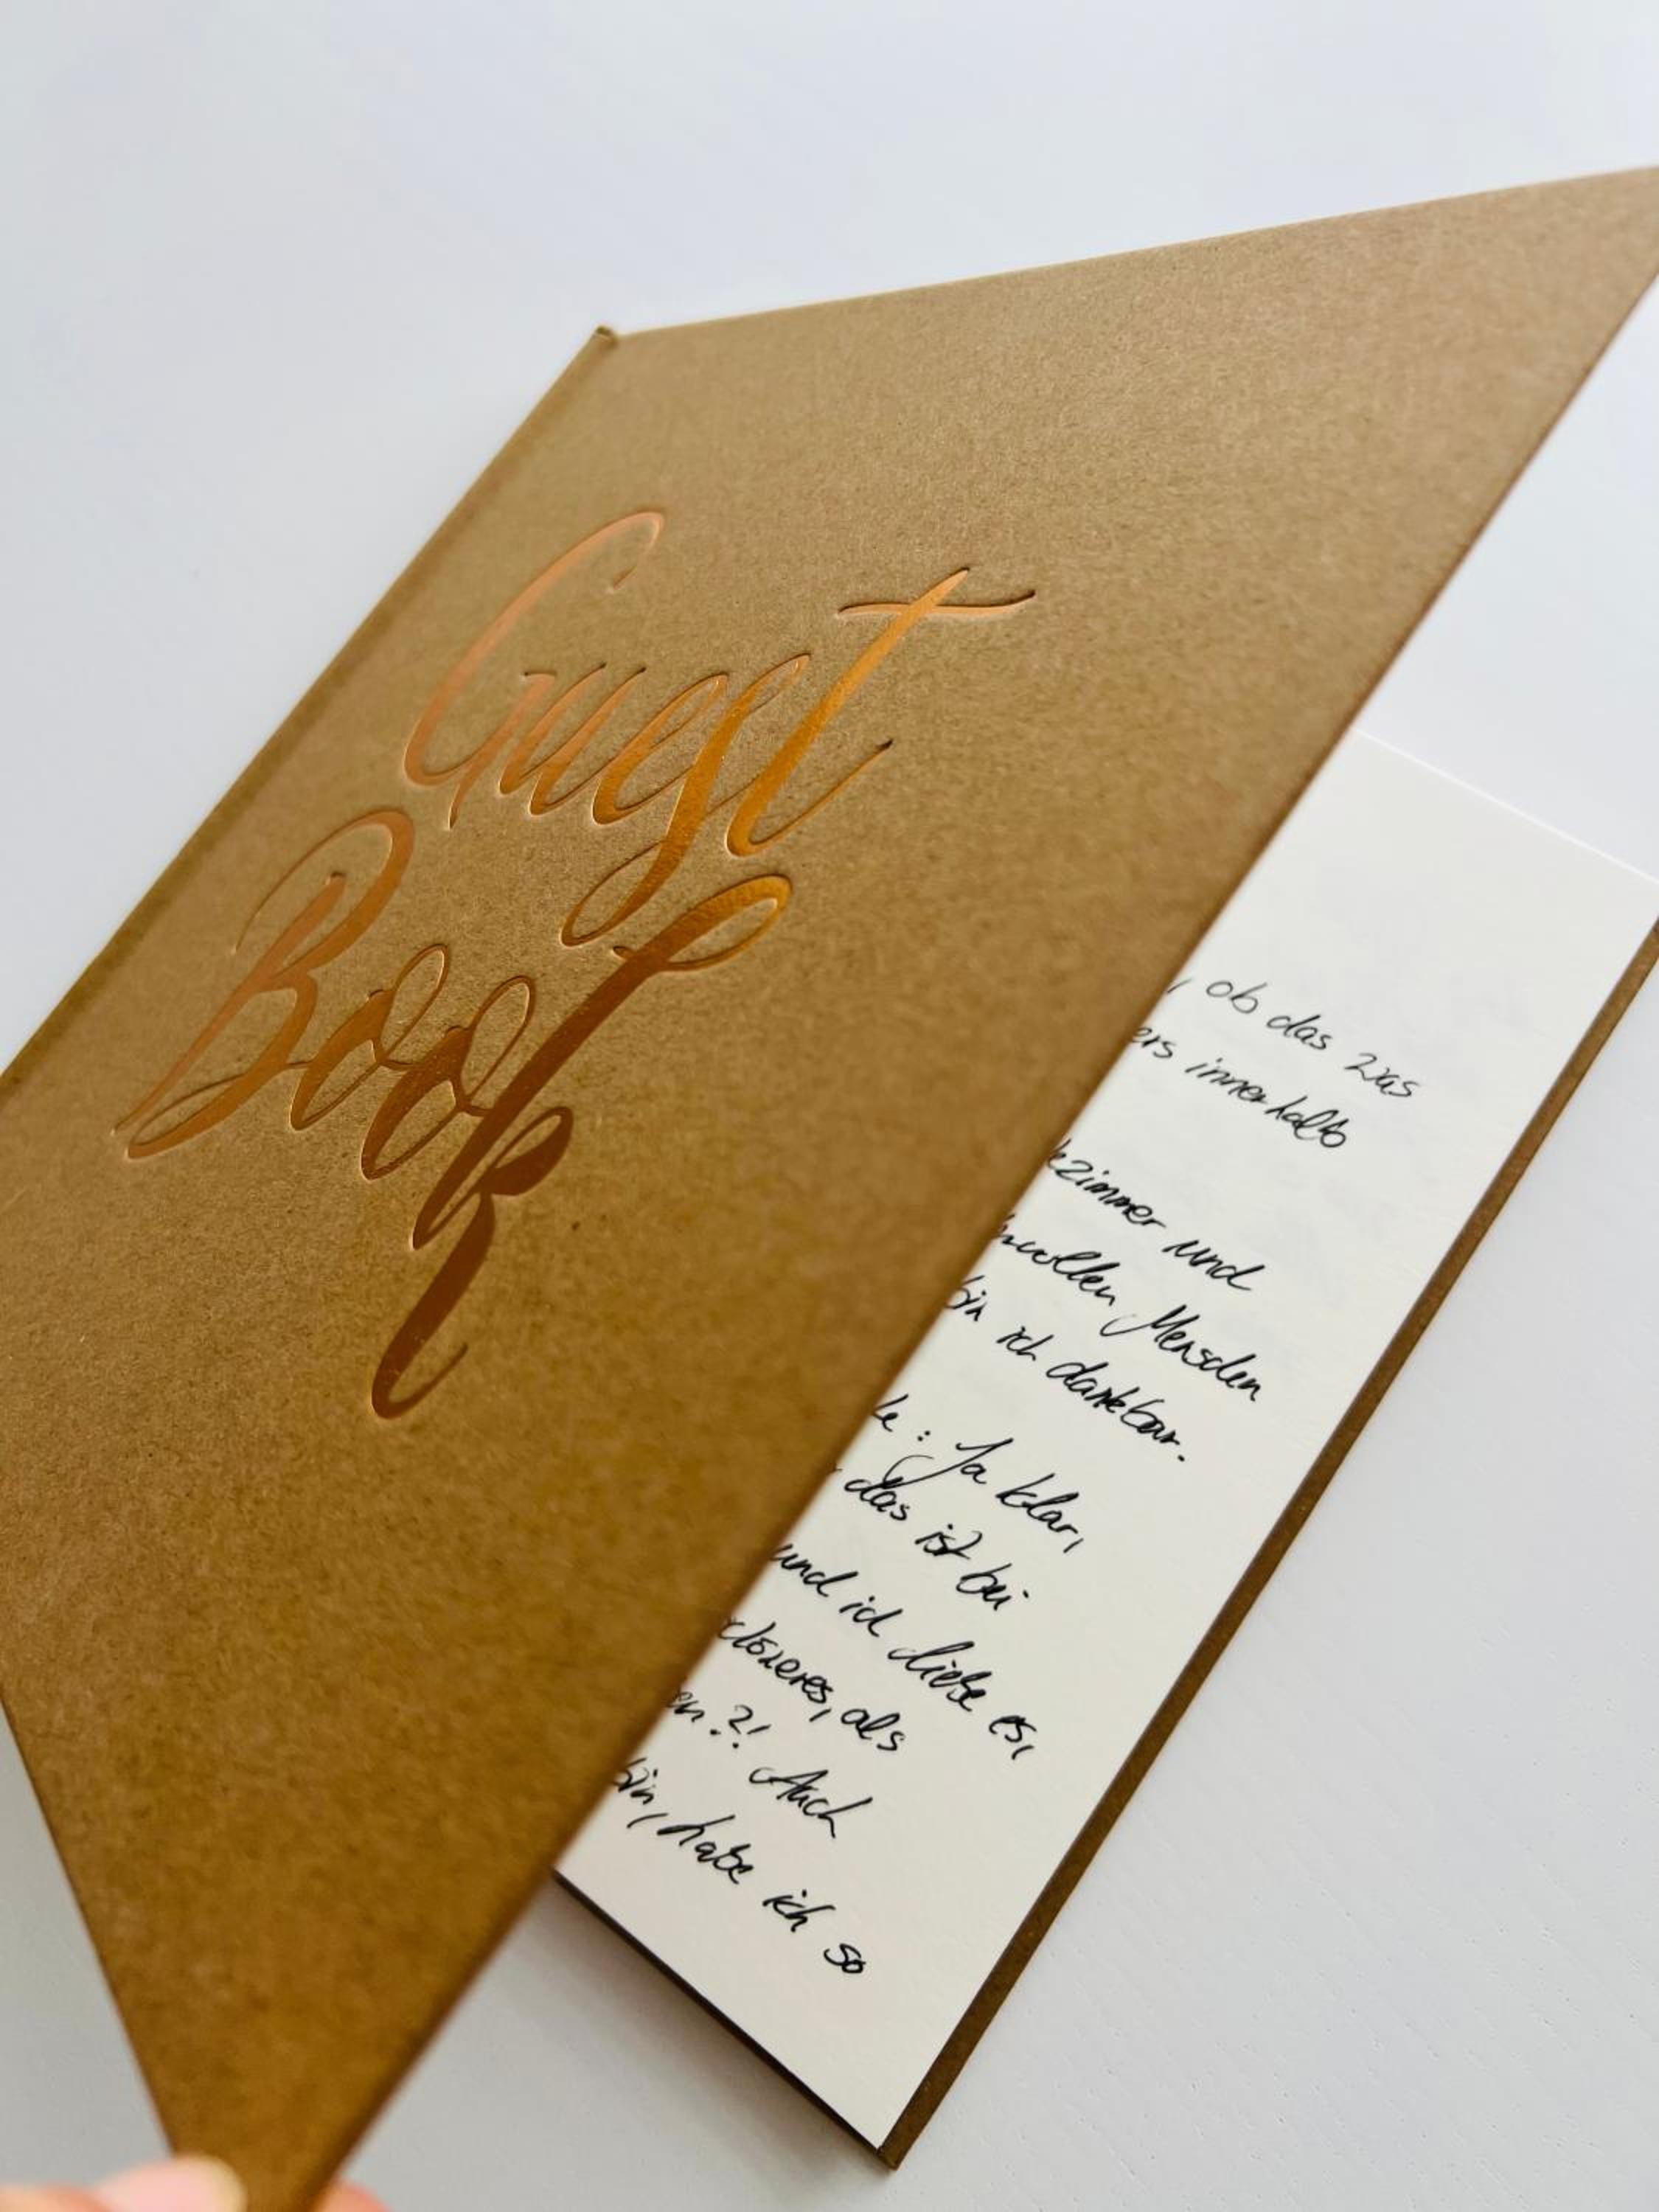 Guest
Book
, ob das was
ers innerhalb
ezimmer und
wollen Menschen
bin ich dankbar.
le: Ja klar,
das ist bei
und ich liebe es,
höneres, als
en?! Auch
bin, habe ich so